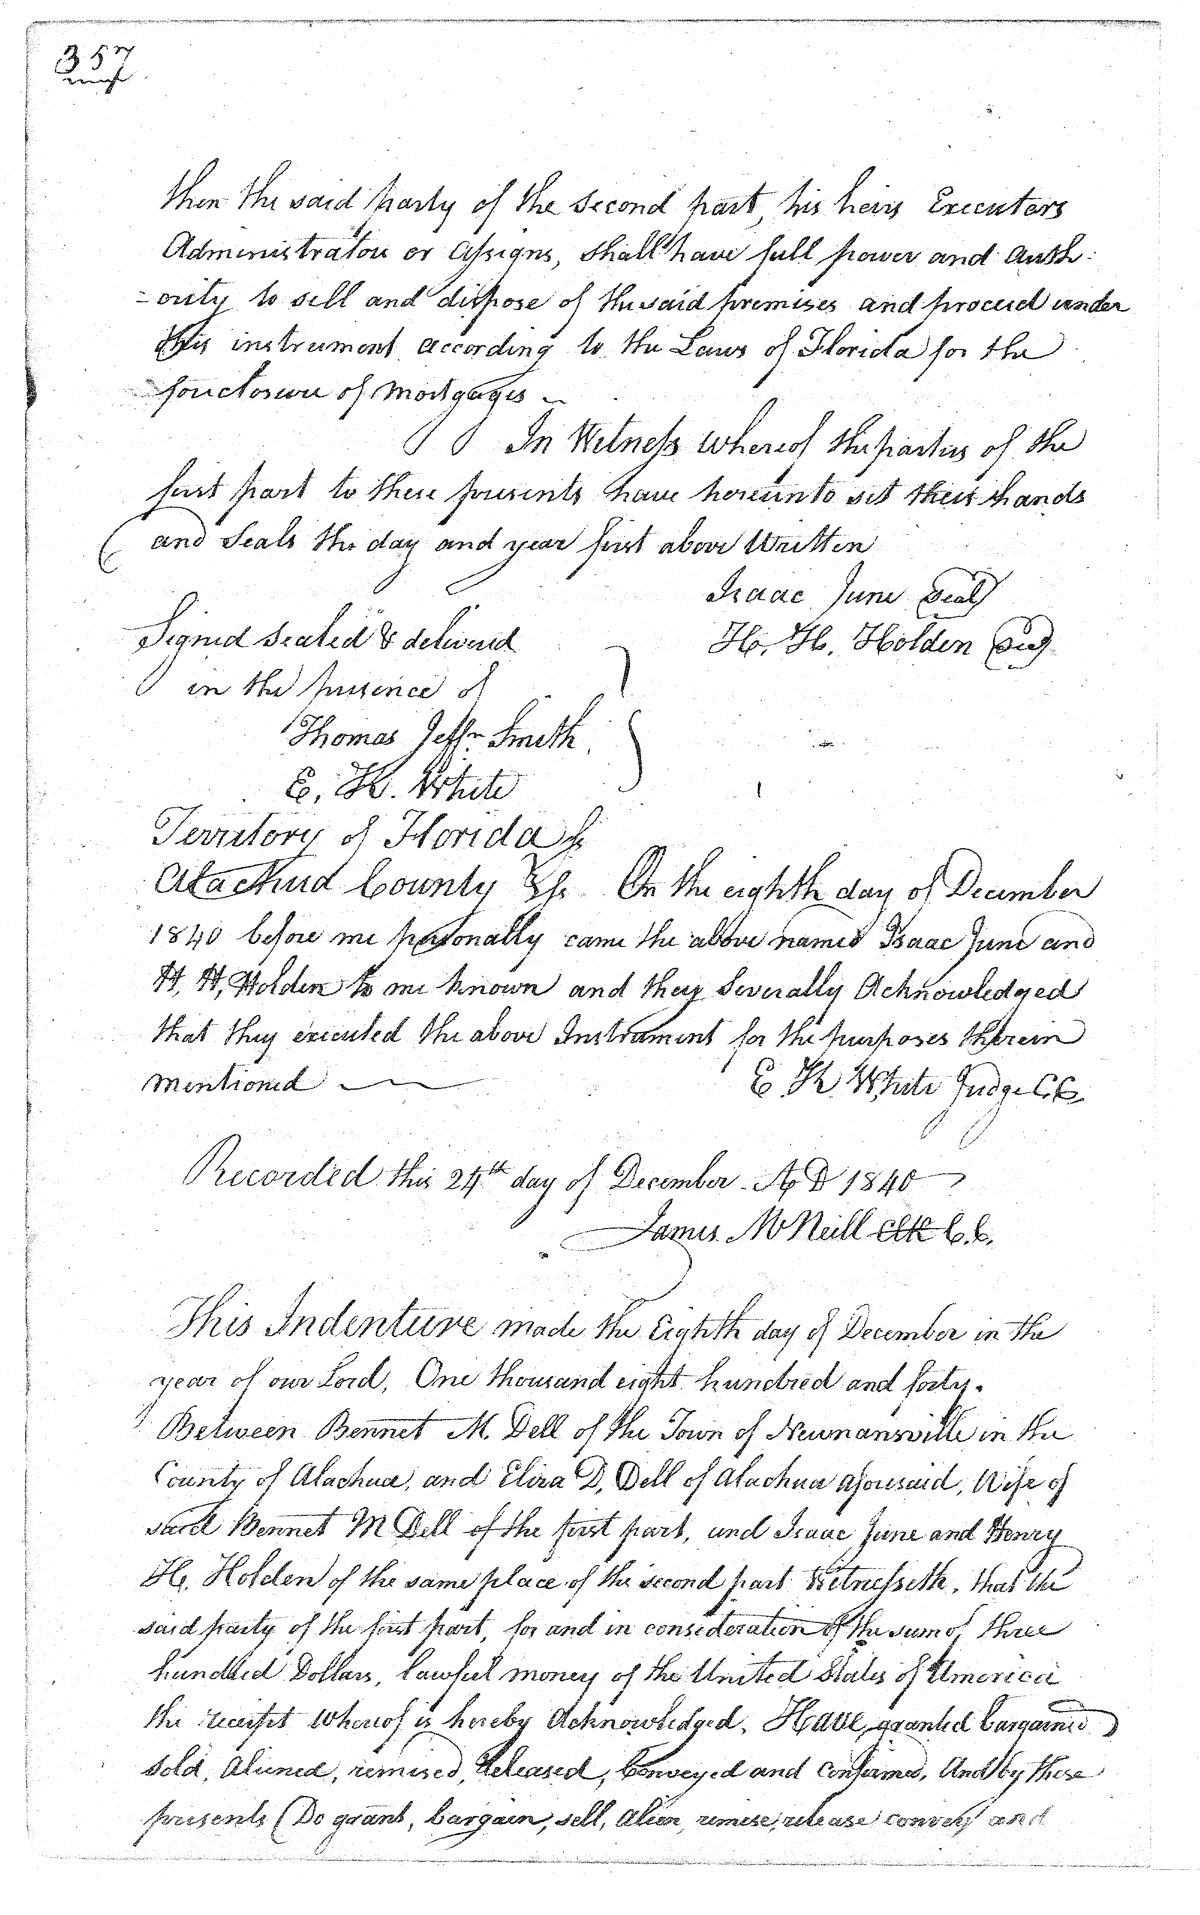 357
then the said party of the second part, his heirs Executors
Administrators or assigns, shall have full power and auth-
-ority to sell and dispose of the said premises and proceed under
this instrument according to the Laws of Florida for the
foreclosure of Mortgages
In Witness whereof the parties of the
first part to these presents have hereunto set their hands
and Seals the day and year first above Written
Isaac June Seal
Signed sealed & delivered
H. H. Holden Seal
in the presence of
Thomas Jeffn Smith
E. K. White
Territory of Florida
Alachua County Ss. On the eighth day of December
1840 before me personally came the above named Isaac June and
H. H. Holden to me known and they Severally Acknowledged
that they executed the above Instrument for the purposes therein
mentioned E K White Judge C.C.
Recorded this 24th day of December A D 1840
James McNeill Clk C.C.
This Indenture made the Eighth day of December in the
year of our Lord, One thousand eight hundred and forty.
Between Bennet M. Dell of the Town of Newnansville in the
County of Alachua, and Eliza D. Dell of Alachua aforesaid, Wife of
said Bennet M Dell of the first part, and Isaac June and Henry
H. Holden of the same place of the second part Witnesseth, that the
said party of the first part, for and in consideration of the sum of three
hundred Dollars, lawful money of the United States of America
the receipt whereof is hereby Acknowledged, Have, granted bargained
sold, aliened, remised, released, conveyed and confirmed, And by these
presents (Do grant, bargain, sell, alien, remise, release convey and